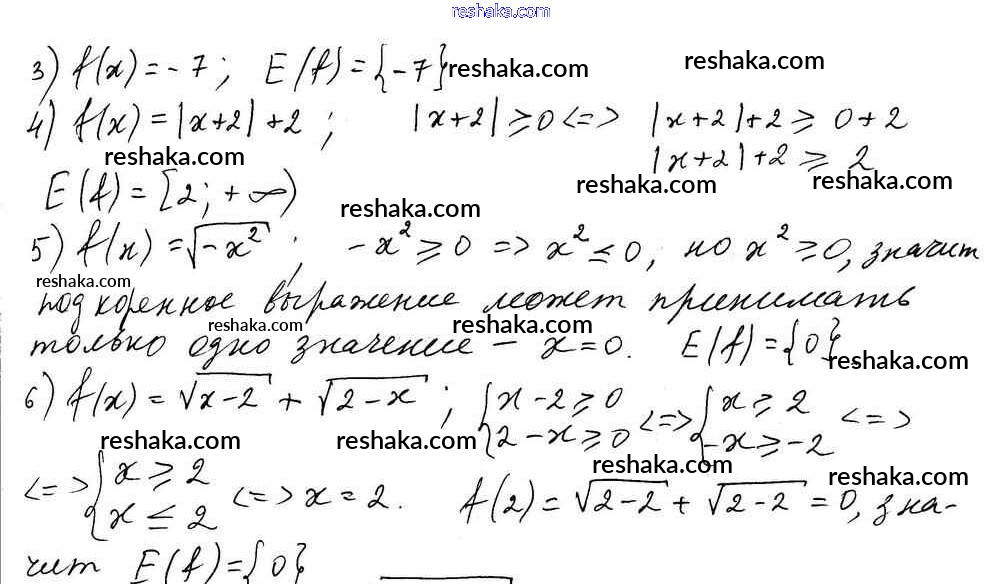 reshaka.com
3) f(x) = -7; E(f) = {-7} reshaka.com reshaka.com
4) f(x) = |x+2| + 2; |x+2| ≥ 0 <=> |x+2| + 2 ≥ 0 + 2
reshaka.com |x+2| + 2 ≥ 2
E(f) = [2; +∞) reshaka.com reshaka.com reshaka.com
5) f(x) = √(-x²); -x² ≥ 0 => x² ≤ 0, но x² ≥ 0, значит
reshaka.com
подкоренное выражение может принимать
reshaka.com reshaka.com
только одно значение – x = 0. E(f) = {0}.
reshaka.com
6) f(x) = √(x-2) + √(2-x); {x-2 ≥ 0 2-x ≥ 0 <=> {x ≥ 2 -x ≥ -2 <=>
reshaka.com reshaka.com reshaka.com reshaka.com
<=> {x ≥ 2 x ≤ 2 <=> x = 2. f(2) = √(2-2) + √(2-2) = 0, зна-
чит E(f) = {0}